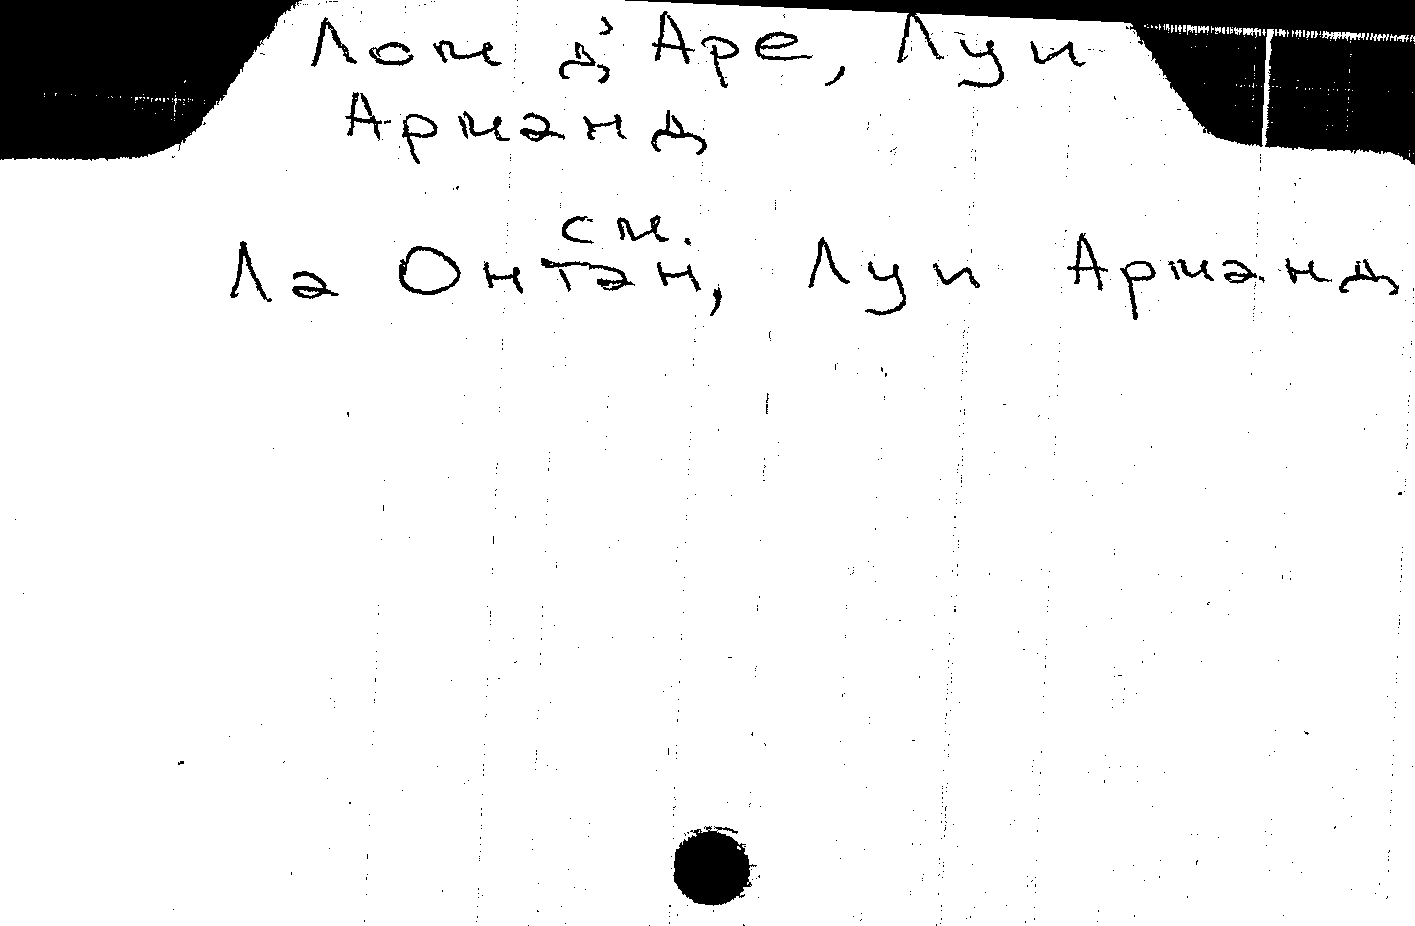 Лом д'Аре, Луи
Арманд
см.
Ла Онтан, Луи Арманд